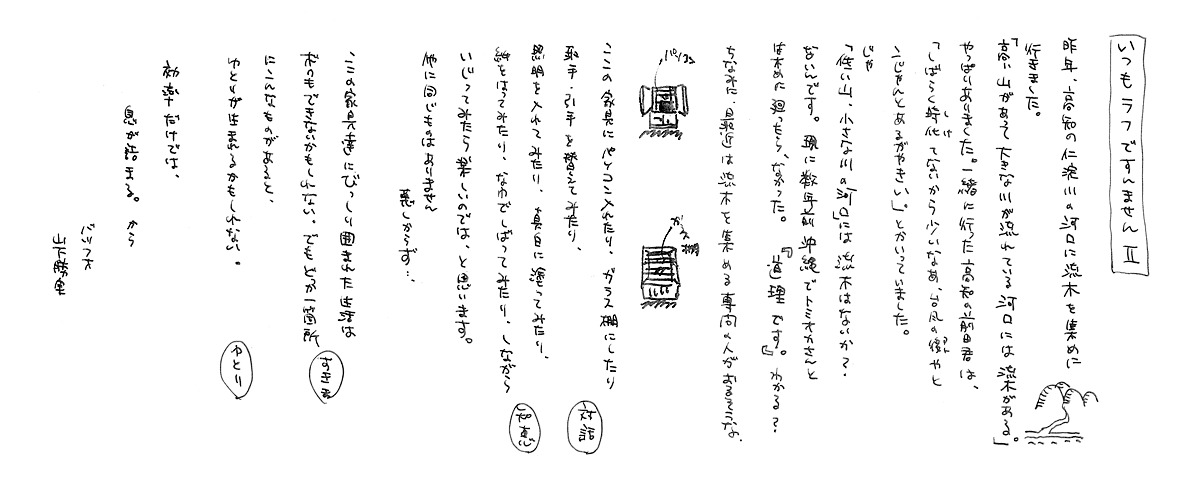 いつもラフですんません Ⅱ
昨年、高知の仁淀川の河口に流木を集めに
行きました。
「高い山があって大きな川が流れている河口には流木がある。」
やっぱりありました。一緒に行った高知の前田君は、
「しばらく時化てないから少いなあ、台風の後やと
しけ
アト
こじゃんとあるがやきい」。とかいっていました。
じゃ
「低い山、小さな川の河口」には流木はないか？
ないんです。現に数年前沖縄でトミオカさんと
はじめに廻ったら、なかった。『道理です。』わかる？
ちなみに、最近は流木を集める専門の人があるそうな。
パソコン
ガラス棚
ここの家具にパソコン入れたり、ガラス棚にしたり
取手・引手を替えてみたり、
対話
照明を入れてみたり、真白に塗ってみたり、
紙をはってみたり、なわでしばってみたり、しながら
知恵
いじってみたら楽しいのでは、と思います。
他に同じものはありません
悪しからず…
ここの家具達にびっしり囲まれた生活は
すきま
おもできないかもしれない。でもどこか一箇所
にこんなものがあると、
ゆとりが生まれるかもしれない。
ゆとり
効率だけでは、
息が詰まる。から
山下勝里